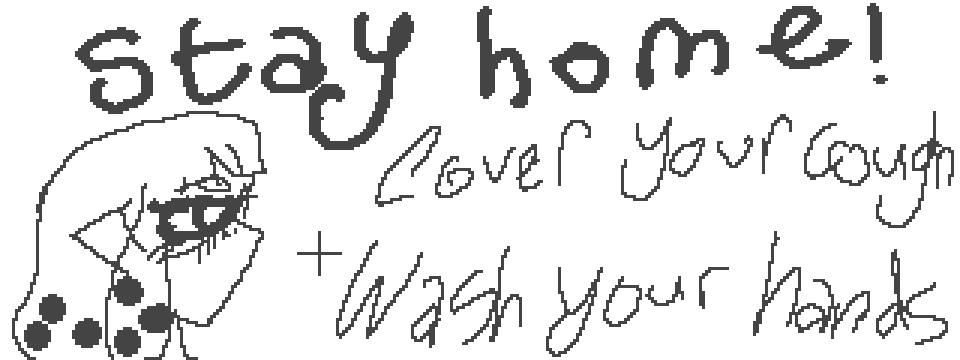 stay home!
Cover your cough
+ Wash your hands